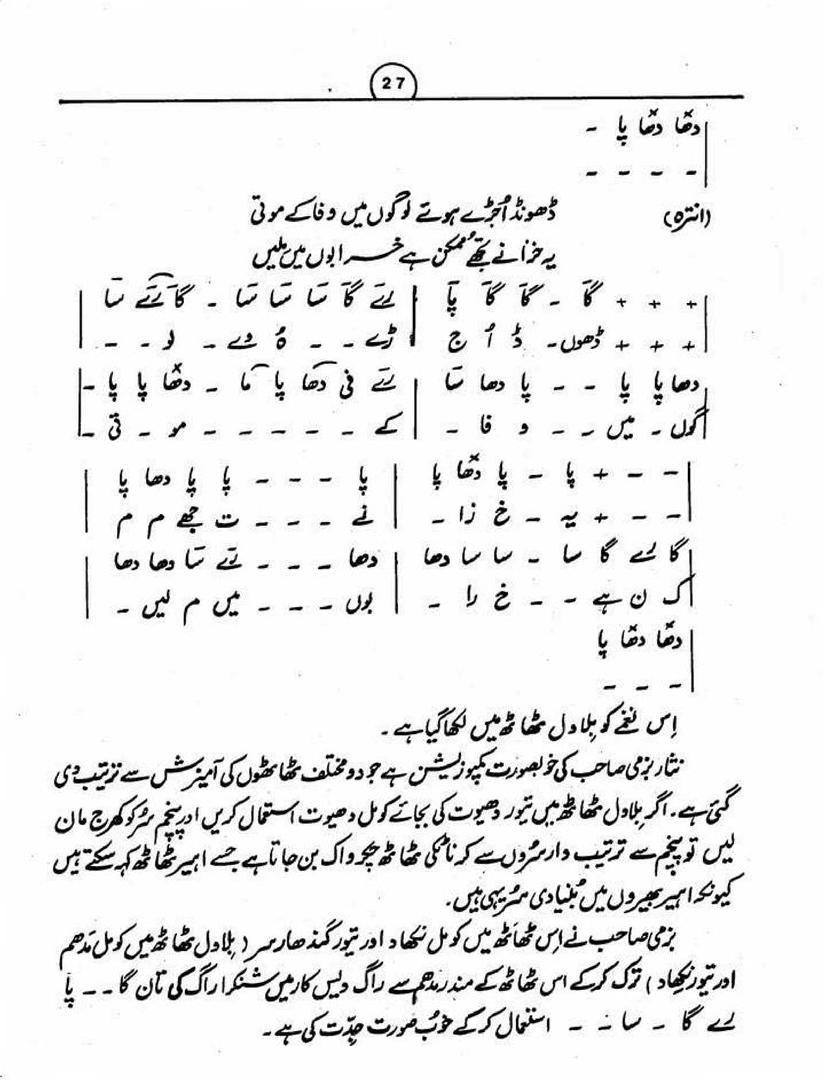 27
دھا دھا پا -
- - - -
(انترہ) ڈھونڈ اُجڑے ہوتے لوگوں میں وفا کے موتی
یہ خزانے تجھے ممکن ہے خرابوں میں ملیں
+ + + گا - گا گا پا | رے گا سا سا سا - گا رے سا
+ + + ڈھوں - ڈ اُ ج | ڑے - - ہُ وے - لو - -
دھا پا پا - - پا دھا سا | رے نی دھا پا ما - دھا پا پا -
گوں - میں - - و فا - | کے - - - - - مو - تی -
- - + پا - پا دھا پا | پا - - - پا پا دھا پا
- - + یہ - خ زا - | نے - - - ت جھے م م
گا رے گا سا - سا سا دھا | دھا - - - رے سا دھا دھا
ک ن ہے - - خ را - | بوں - - - میں م لیں -
دھا دھا پا
- - -
اِس نغمے کو بلاول ٹھاٹھ میں لکھا گیا ہے۔
نثار بزمی صاحب کی خوبصورت کمپوزیشن ہے جو دو مختلف ٹھاٹھوں کی آمیزش سے ترتیب دی
گئی ہے۔ اگر بلاول ٹھاٹھ میں تیور دھیوت کی بجائے کومل دھیوت استعمال کریں اور پنچم سُر کو کھرج مان
لیں تو پنچم سے ترتیب وار سُروں سے کرناٹکی ٹھاٹھ چکرواک بن جاتا ہے جسے اہیر ٹھاٹھ کہہ سکتے ہیں
کیونکہ اہیر بھیروں میں بُنیادی سُر یہی ہیں۔
بزمی صاحب نے اِس ٹھاٹھ میں کومل نکھاد اور تیور گندھار سر (بلاول ٹھاٹھ میں کومل مدھم
اور تیور نکھاد) ترک کر کے اس ٹھاٹھ کے مندر مدھم سے راگ دیس کار میں شنکرا راگ کی تان گا - - پا
رے گا - سا - - استعمال کر کے خوب صورت جدّت کی ہے۔